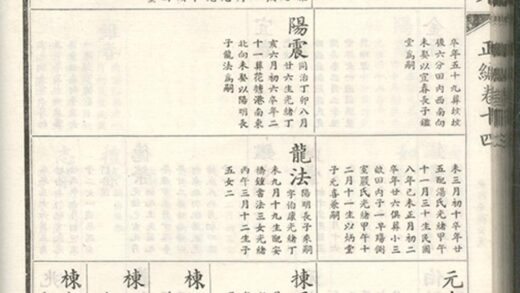 正編卷十四
卒年五十九葬蚊坟
後六分田內西南向
未娶以宜春長子鑑
堂為嗣
陽震
同治丁卯八月
廿六生光緒丁
亥六月初六卒年二
十一葬花塘港南東
北向未娶以陽明長
子龍法為嗣
未三月初十卒年廿
五配湯氏光緒甲午
十一月三十生民國
八年己未正月初二
卒年廿六俱葬小三
畝田內子一早殤側
室嚴氏光緒甲午十
二月十一生以炳堂
子元喜兼嗣
龍法
陽明長子來嗣
字伯康光緒丁
未九月十九生配安
橋鍾書法三女光緒
丙午三月十二生子
五女二
元
棟
棟
棟
棟